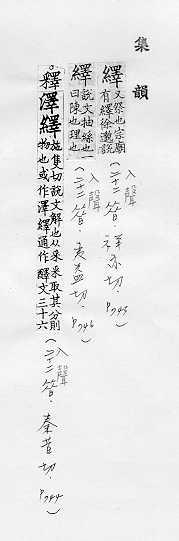 集韻
繹又祭也宗廟有繹徐邈說(入聲二十二昔.祥亦切.P745)
繹說文抽絲也一曰陳也理也(入聲二十二昔.夷益切.P746)
。釋澤繹施隻切說文解也从釆釆取其分別物也或作澤繹通作醳文三十六(入聲二十二昔.秦昔切.P744)